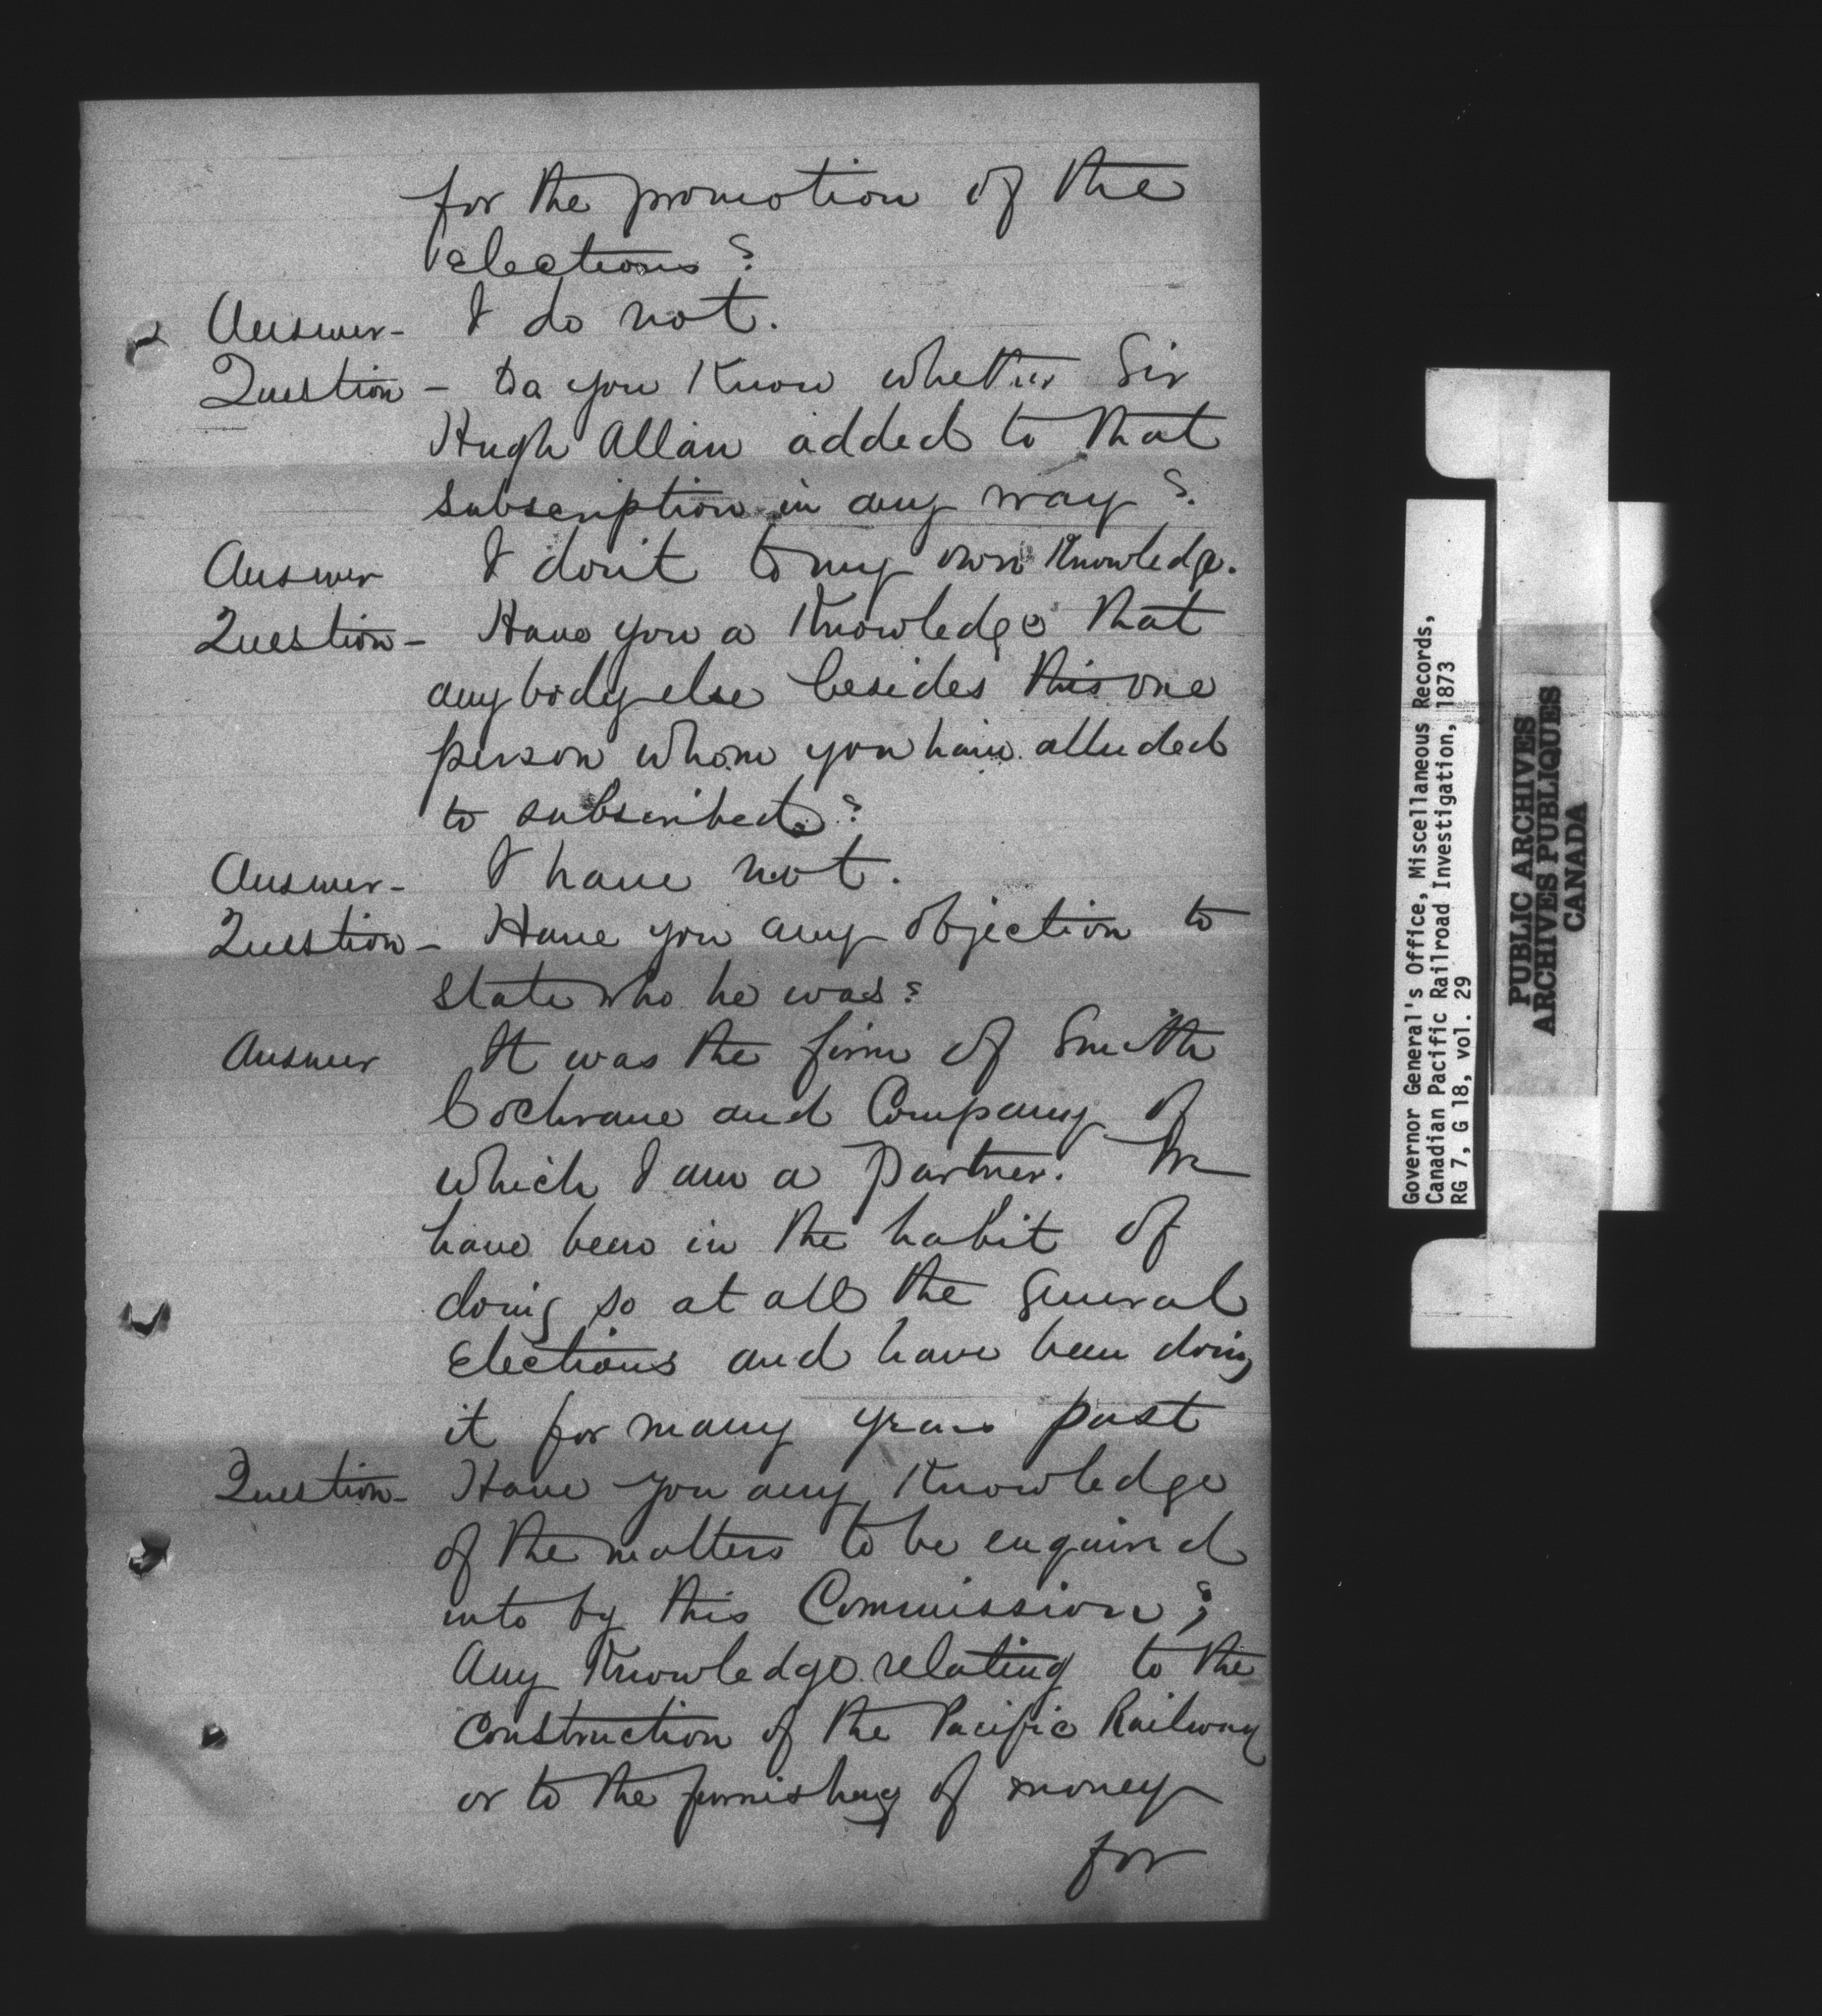 for the promotion of the
elections?
Answer- I do not.
Question - Do you Know whether Sir
Hugh Allan added to that
subscription in any way?
Answer I don't to my own Knowledge.
Question - Have you a Knowledge that
anybody else besides this one
person whom you have alluded
to subscribed?
Answer- I have not.
Question - Have you any objection to
state who he was?
Answer It was the firm of Smith
Cochrane and Company of
which I am a Partner. We
have been in the habit of
doing so at all the General
Elections and have been doing
it for many years past
Question- Have you any Knowledge
of the matters to be enquired
into by this Commission;
Any Knowledge relating to the
Construction of the Pacific Railway
or to the furnishing of money
for
Governor General's Office, Miscellaneous Records,
Canadian Pacific Railroad Investigation, 1873
RG 7, G 18, vol. 29
PUBLIC ARCHIVES
ARCHIVES PUBLIQUES
CANADA